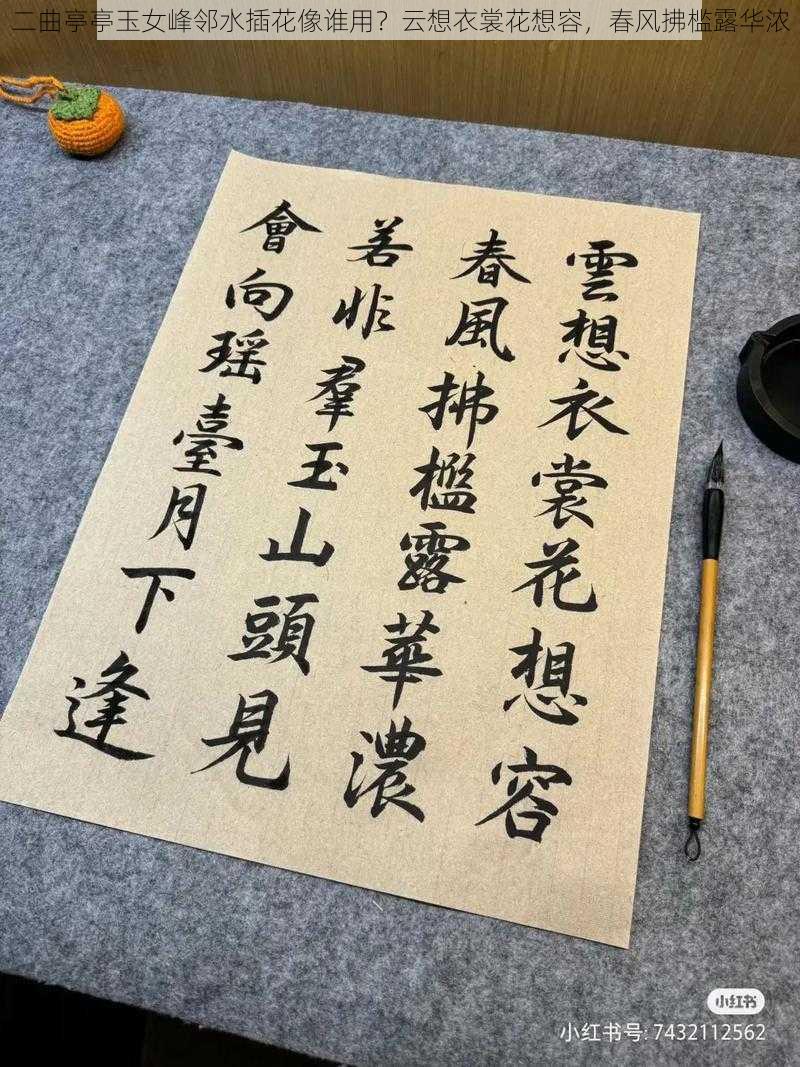 二曲亭亭玉女峰邻水插花像谁用？云想衣裳花想容，春风拂槛露华浓
雲想衣裳花想容
春風拂檻露華濃
若非羣玉山頭見
會向瑶臺月下逢
小红书
小红书号: 7432112562